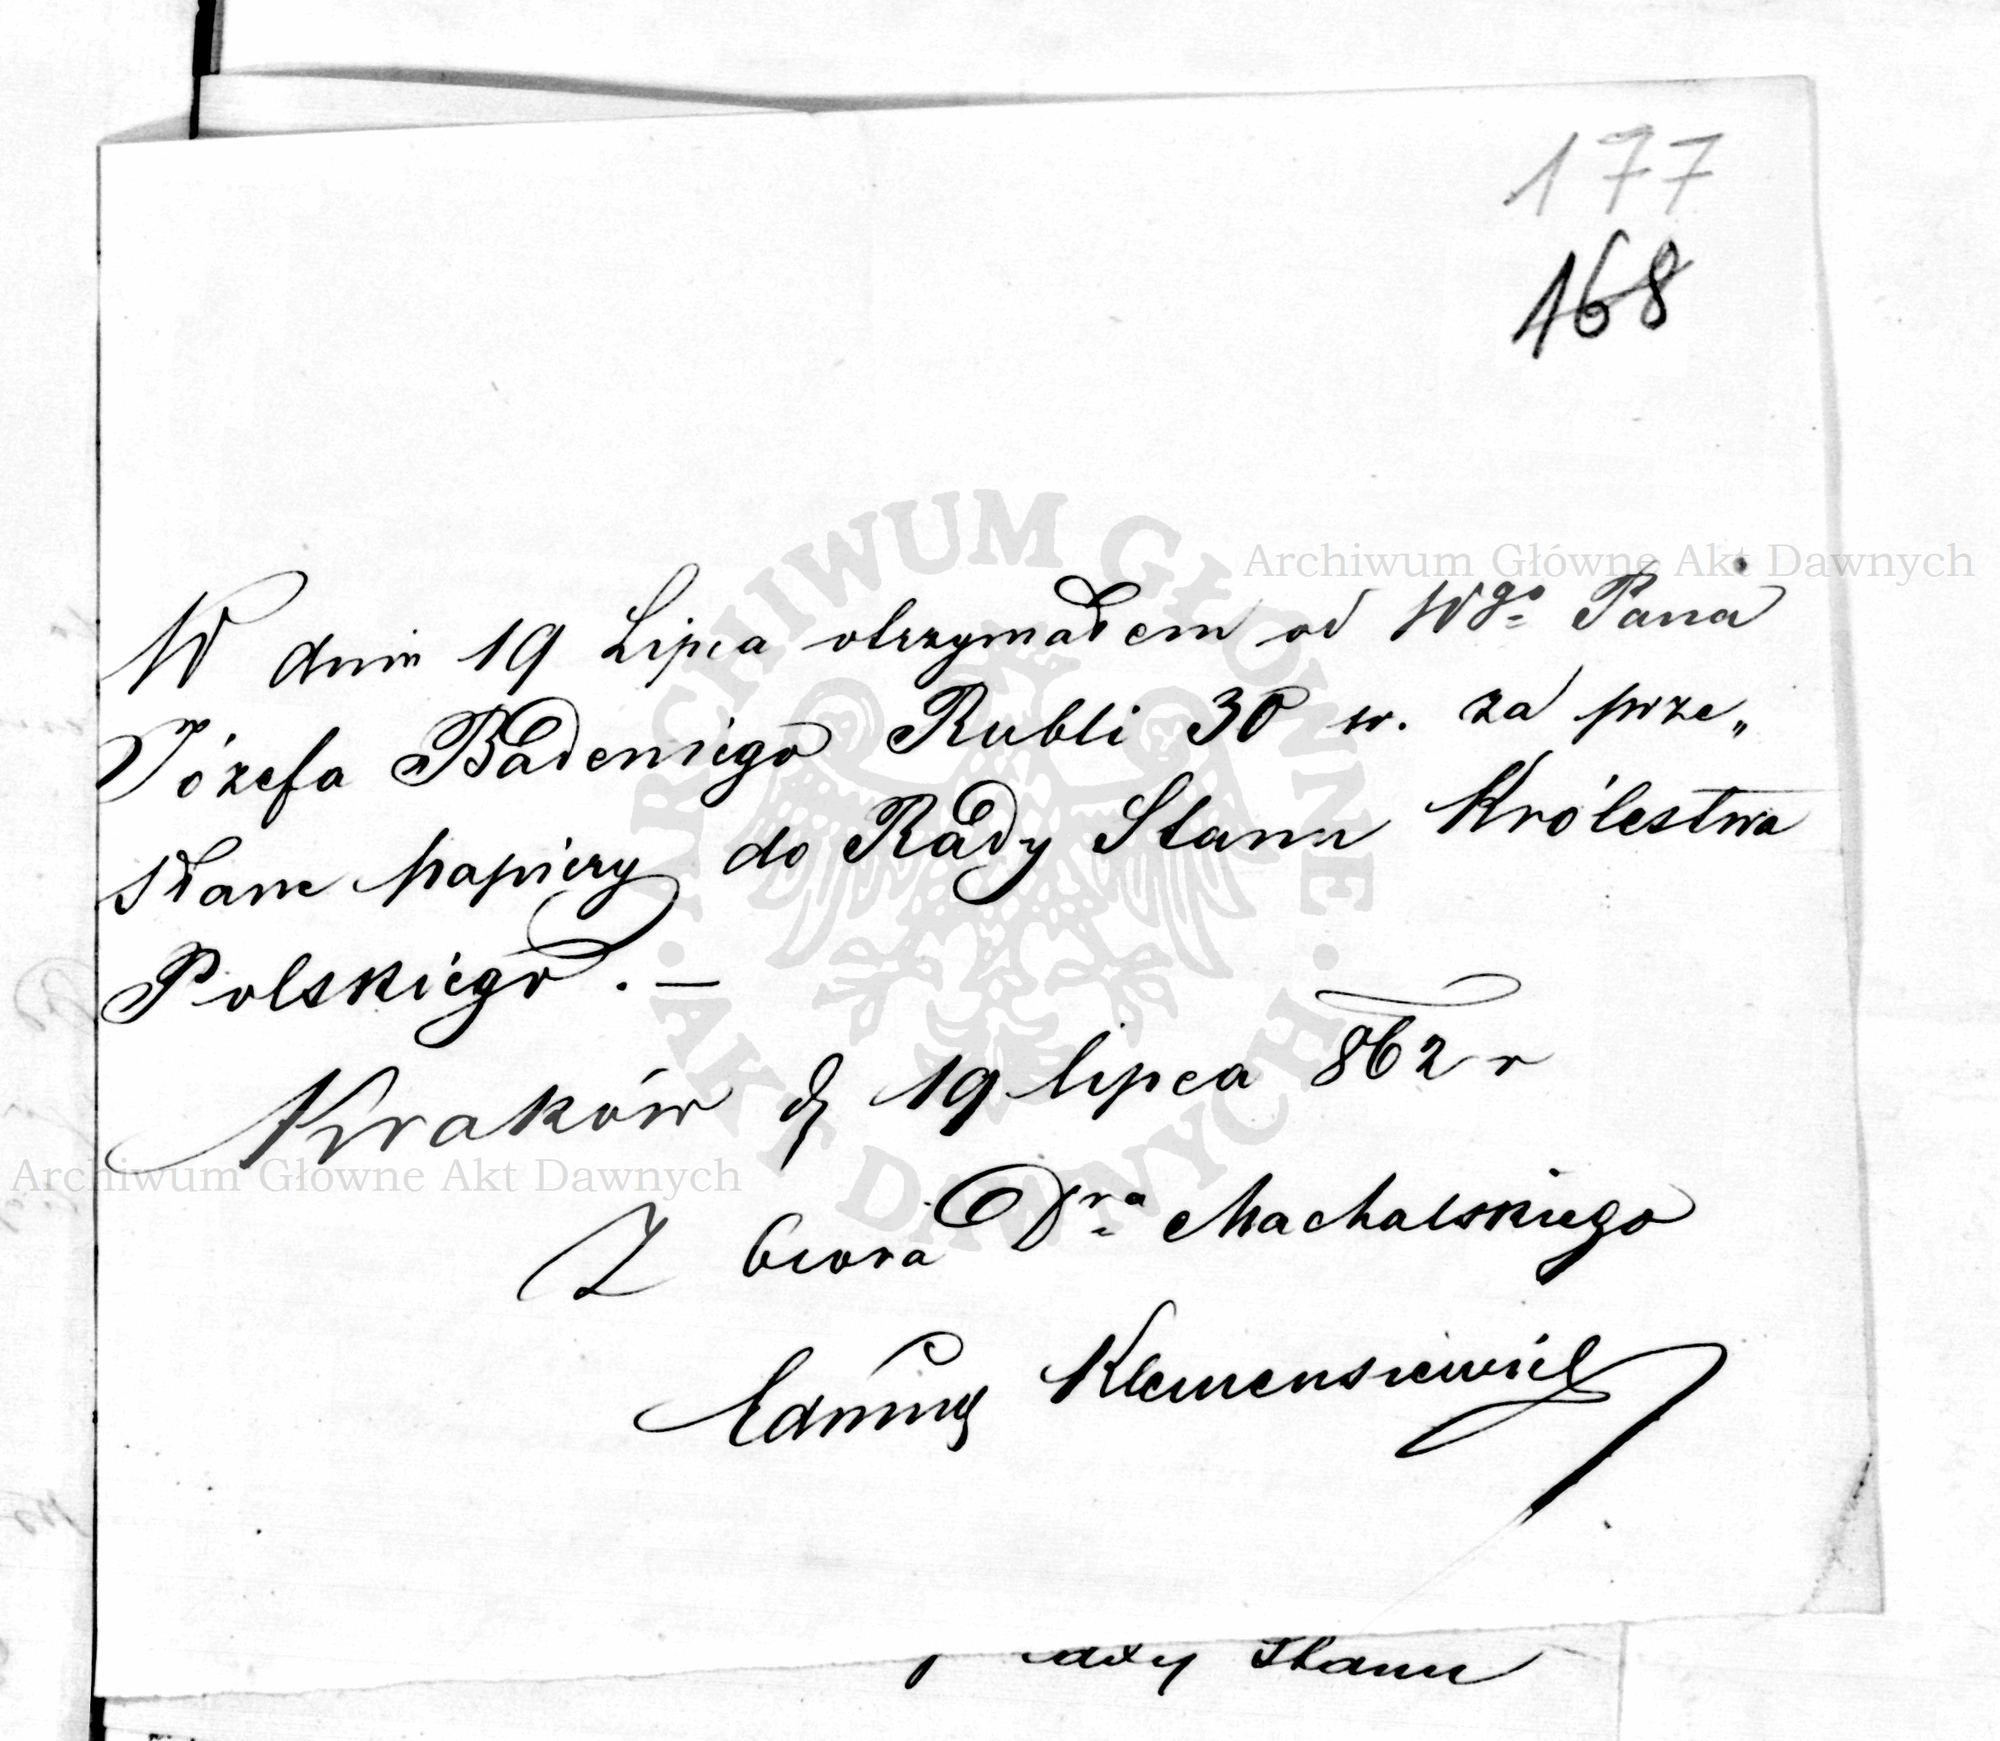 177
168
W dniu 19 Lipca otrzymałem od Wgo Pana
Józefa Badeniego Rubli 30 sr. za prze„
słane papiery do Rady Stanu Królestwa
Polskiego. —
Kraków d 19 lipca 862 r
Z biora Dra Machalskiego
Edmund Klemensiewicz
Rady Stanu
Archiwum Główne Akt Dawnych
Archiwum Główne Akt Dawnych
ARCHIWUM GŁÓWNE AKT DAWNYCH